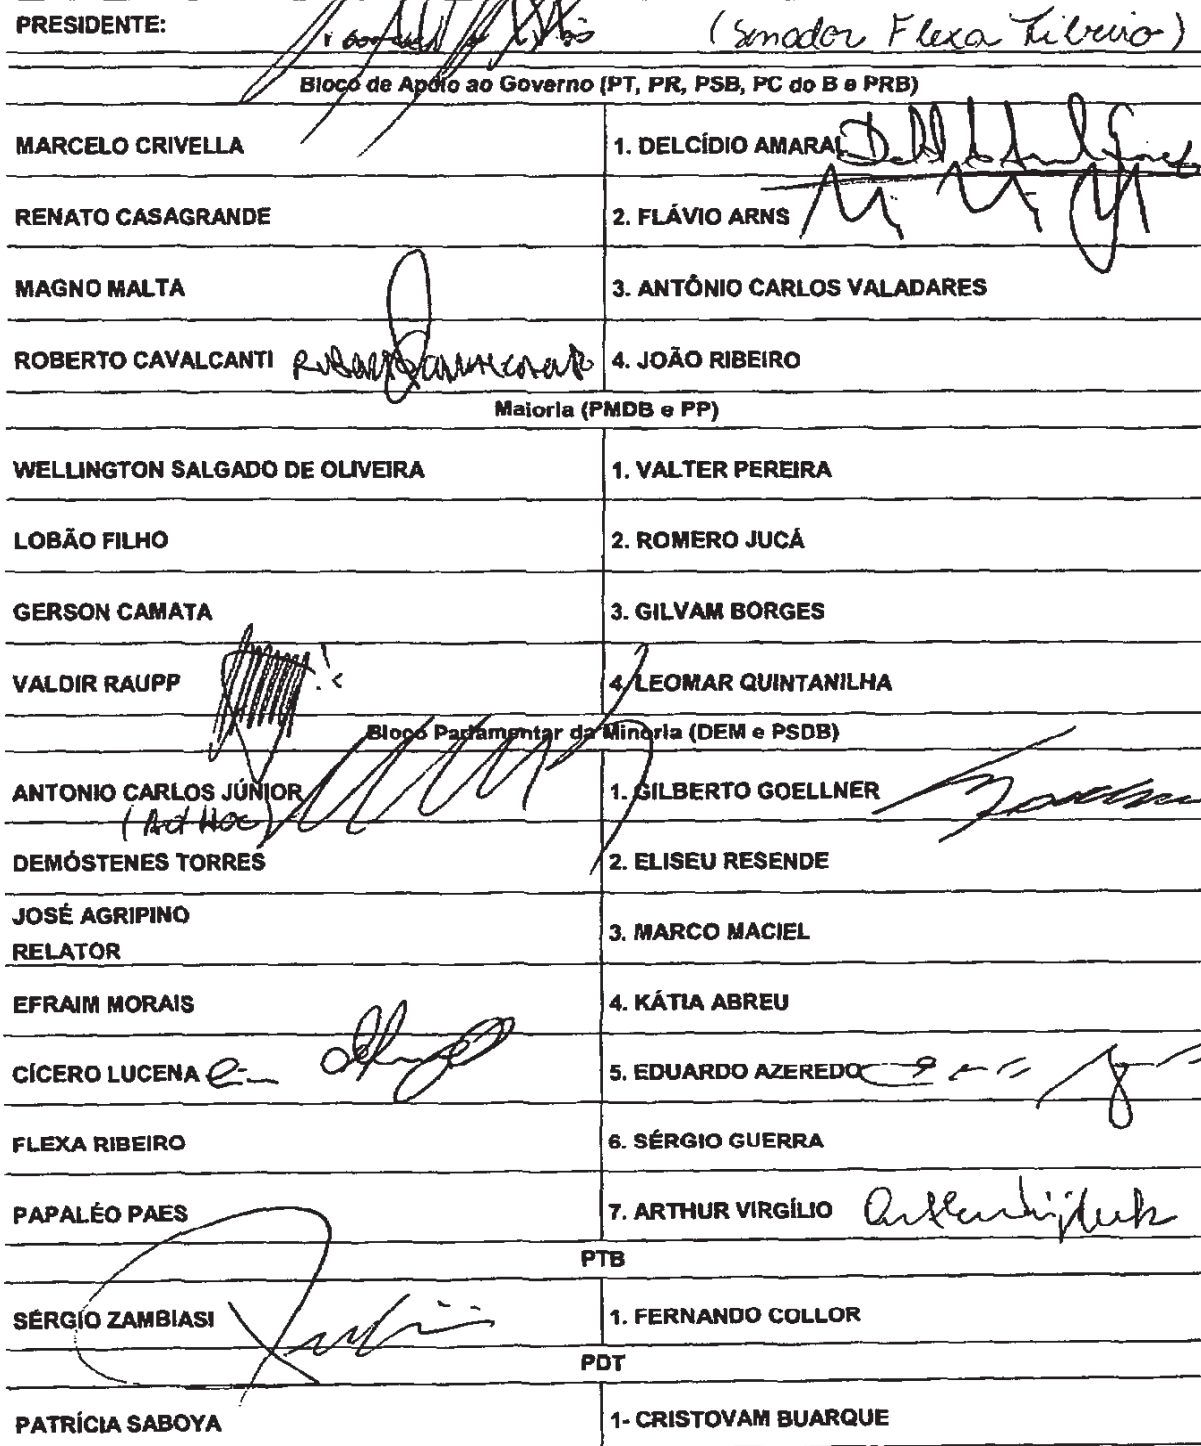 PRESIDENTE: (Senador Flexa Ribeiro)
Bloco de Apoio ao Governo (PT, PR, PSB, PC do B e PRB)
MARCELO CRIVELLA 1. DELCÍDIO AMARAL
RENATO CASAGRANDE 2. FLÁVIO ARNS
MAGNO MALTA 3. ANTÔNIO CARLOS VALADARES
ROBERTO CAVALCANTI 4. JOÃO RIBEIRO
Maioria (PMDB e PP)
WELLINGTON SALGADO DE OLIVEIRA 1. VALTER PEREIRA
LOBÃO FILHO 2. ROMERO JUCÁ
GERSON CAMATA 3. GILVAM BORGES
VALDIR RAUPP 4. LEOMAR QUINTANILHA
Bloco Parlamentar da Minoria (DEM e PSDB)
ANTONIO CARLOS JÚNIOR 1. GILBERTO GOELLNER
(Ad Hoc)
DEMÓSTENES TORRES 2. ELISEU RESENDE
JOSÉ AGRIPINO
RELATOR 3. MARCO MACIEL
EFRAIM MORAIS 4. KÁTIA ABREU
CÍCERO LUCENA 5. EDUARDO AZEREDO
FLEXA RIBEIRO 6. SÉRGIO GUERRA
PAPALÉO PAES 7. ARTHUR VIRGÍLIO
PTB
SÉRGIO ZAMBIASI 1. FERNANDO COLLOR
PDT
PATRÍCIA SABOYA 1- CRISTOVAM BUARQUE